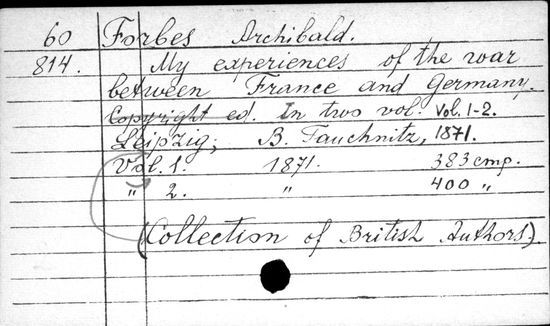 60 Forbes Archibald.
814. My experiences of the war
between France and Germany.
Copyright ed. In two vol. Vol. 1-2.
Leipzig; B. Tauchnitz, 1871.
Vol. 1. 1871. 383 cmp.
" 2. " 400 "
(Collection of British Authors).